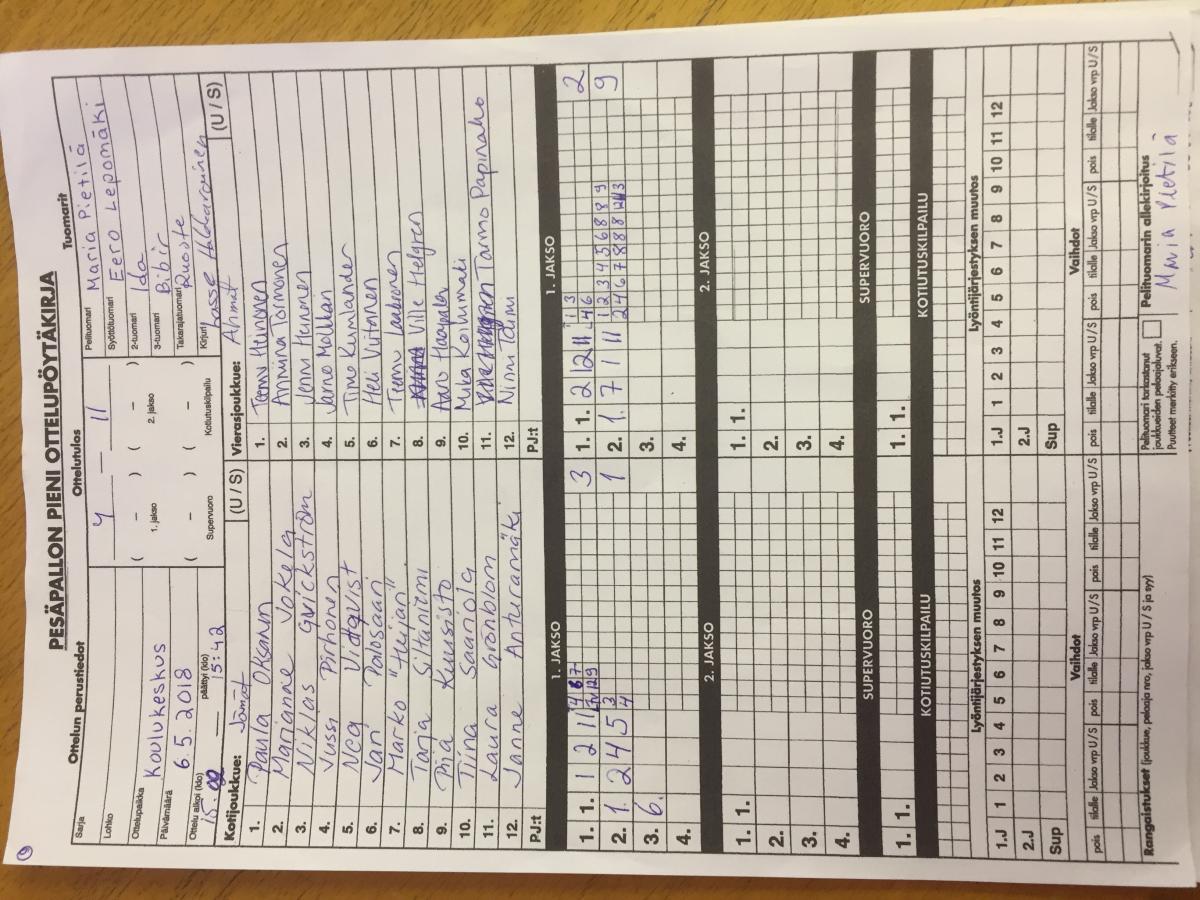 PESÄPALLON PIENI OTTELUPÖYTÄKIRJA
Ottelun perustiedot
Ottelutulos
Tuomarit
Sarja
Lohko
Ottelupaikka Koulukeskus
Päivämäärä 6.5.2018
Ottelu alkoi (klo)
päättyi (klo) 15:42
4 – 11
( – ) ( – )
1. jakso 2. jakso
( – ) ( – )
Supervuoro Kotiutuskilpailu
Pelituomari Maria Pietilä
Syöttötuomari Eero Lepomäki
2-tuomari Ida
3-tuomari Bibir
Takarajatuomari Ruoste
Kirjuri Lasse
Kotijoukkue: Jämät (U / S)
1. Paula Oksanen
2. Marianne Jokela
3. Niklas Qvickström
4. Jussi Pirhonen
5. Nea
6. Jari Palosaari
7. Marko "Heijari"
8. Tarja Siltaniemi
9. Pia Kuusisto
10. Tiina Saariola
11. Laura Grönblom
12. Janne Anturamäki
PJ:t
Vierasjoukkue: Ahmat (U / S)
1. Teemu Heinonen
2. Anniina Toimonen
3. Jenni Henonen
4. Jarno
5. Timo Kumlander
6. Heli Virtanen
7. Teemu
8. Ville Helgren
9. Aaro Haapala
10. Mika Koivumäki
11. Tarmo Papinaho
12. Ninni
PJ:t
1. JAKSO 1. JAKSO
1. 1. 1 2 11 3
2. 1. 2 4 5 1
3. 6.
4.
1. 1. 2 12 11 2
2. 1. 7 1 11 9
3.
4.
2. JAKSO 2. JAKSO
1. 1. 1. 1.
2. 2.
3. 3.
4. 4.
SUPERVUORO SUPERVUORO
1. 1. 1. 1.
KOTIUTUSKILPAILU KOTIUTUSKILPAILU
Lyöntijärjestyksen muutos Lyöntijärjestyksen muutos
1.J 1 2 3 4 5 6 7 8 9 10 11 12 1.J 1 2 3 4 5 6 7 8 9 10 11 12
2.J 2.J
Sup Sup
Vaihdot Vaihdot
pois tilalle Jakso vrp U/S pois tilalle Jakso vrp U/S pois tilalle Jakso vrp U/S pois tilalle Jakso vrp U/S pois tilalle Jakso vrp U/S pois tilalle Jakso vrp U/S
Rangaistukset (joukkue, pelaaja nro, jakso vrp U / S ja syy)
Pelituomari tarkastanut
joukkueiden pelaajaluvat.
Puutteet merkitty erikseen.
Pelituomarin allekirjoitus
Maria Pietilä